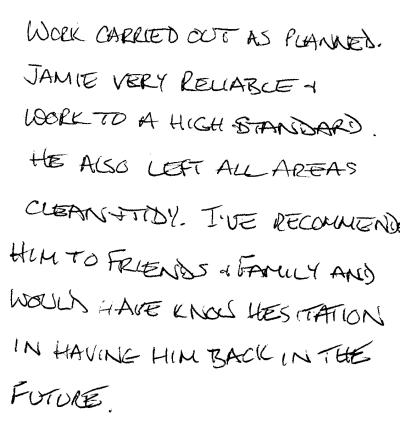 WORK CARRIED OUT AS PLANNED.
JAMIE VERY RELIABLE +
WORK TO A HIGH STANDARD.
HE ALSO LEFT ALL AREAS
CLEAN + TIDY. I'VE RECOMMEND
HIM TO FRIENDS + FAMILY AND
WOULD HAVE KNOW HESITATION
IN HAVING HIM BACK IN THE
FUTURE.